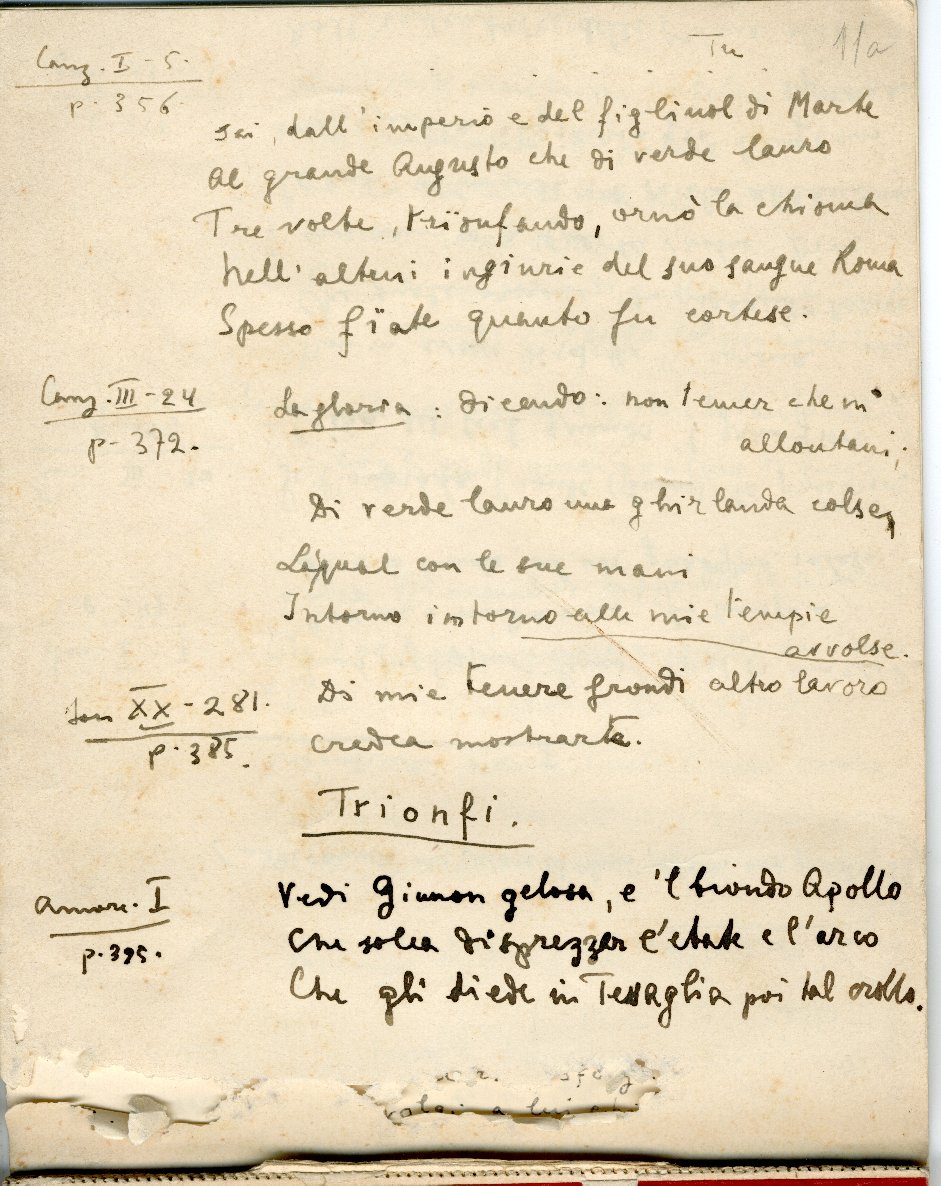 11a
Canz. I - 5.
p. 356.
Tu
sai, dall'imperio e del figliuol di Marte
Al grande Augusto che di verde lauro
Tre volte, trïonfando, ornò la chioma
Nell'altrui ingiurie del suo sangue Roma
Spesso fïate quanto fu cortese.
Canz. III - 24
p. 372.
La gloria : dicendo: non temer che m'
allontani;
Di verde lauro una ghirlanda colse,
La qual con le sue mani
Intorno intorno alle mie tempie
avvolse.
Son XX - 281.
p. 385.
Di mie tenere frondi altro lavoro
credea mostrarte.
Trionfi.
Amore. I
p. 395.
Vedi Giunon gelosa, e 'l biondo Apollo
Che solea disprezzar l'etate e l'arco
Che gli diede in Tessaglia poi tal crollo.